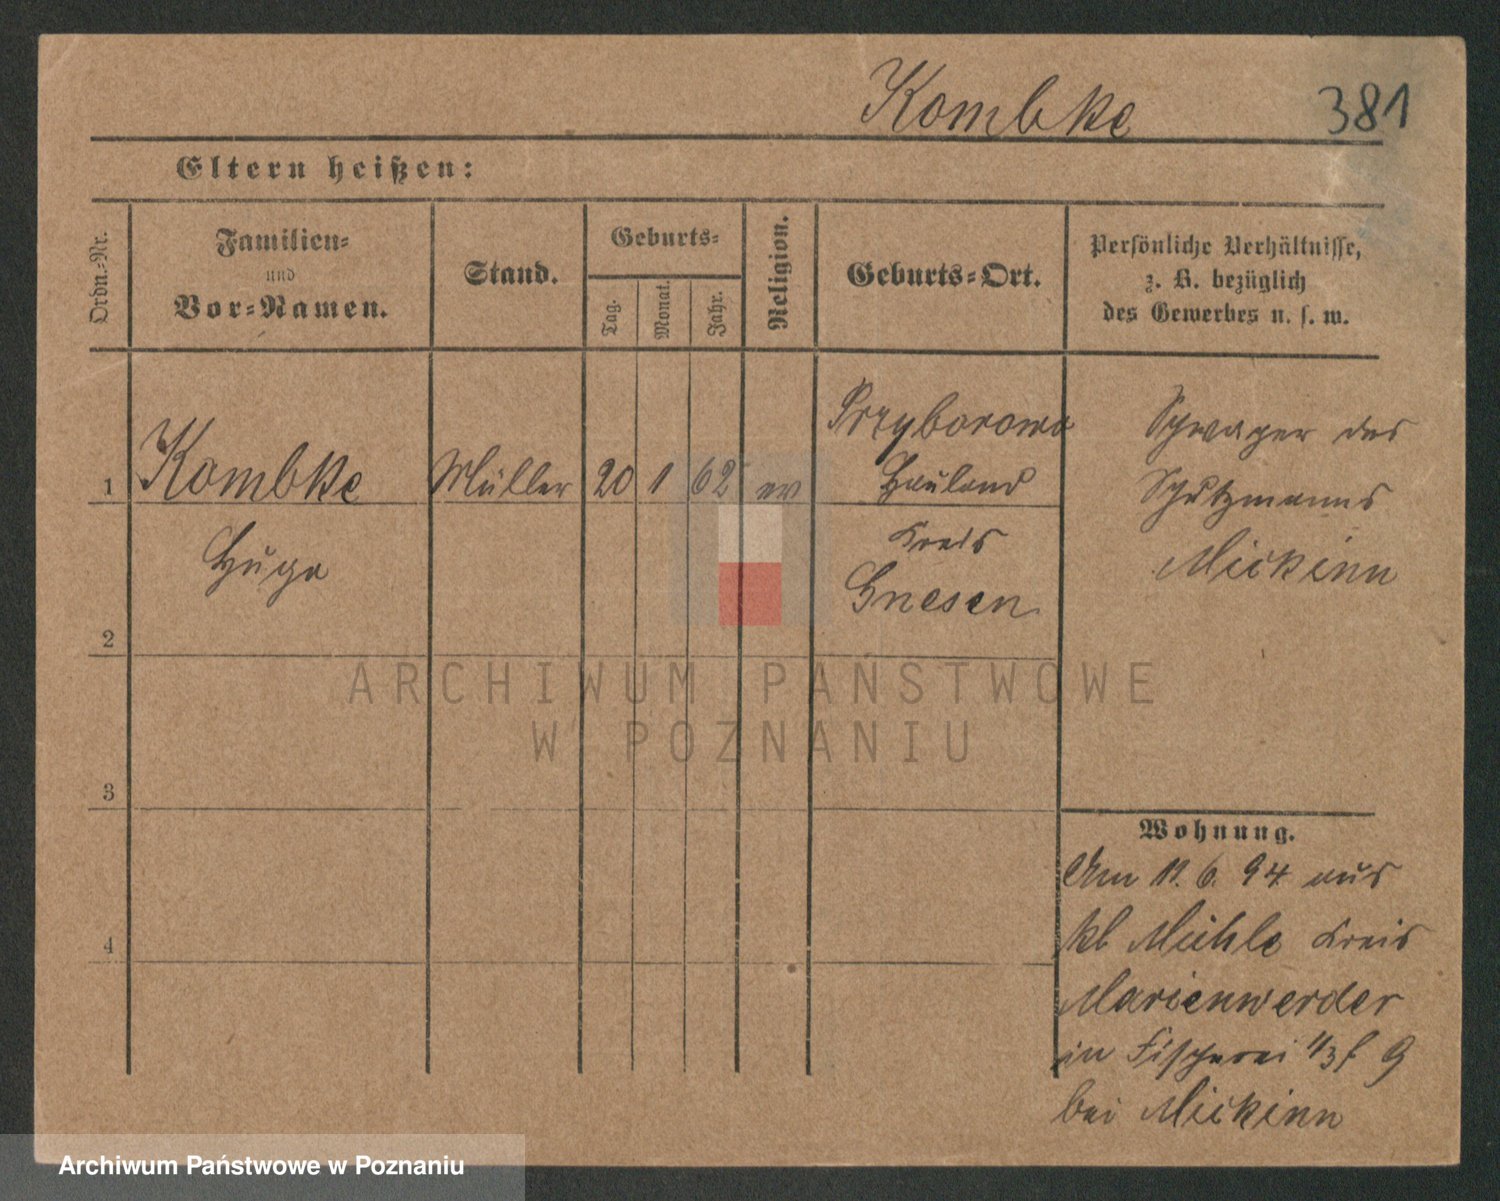 Kombke 381
Eltern heißen:
Ordn.-Nr.
Familien-
und
Vor-Namen.
Stand.
Geburts-
Tag.
Monat.
Jahr.
Religion.
Geburts-Ort.
Persönliche Verhältnisse,
z. B. bezüglich
des Gewerbes u. s. w.
1 Kombke Müller 20 1 62 ev
Hugo
Przyborowo
Hauland
Kreis
Gnesen
Schwager des
Schutzmanns
Mickinn
2
3
4
Wohnung.
Am 11. 6. 94 aus
kl Mühle Kreis
Marienwerder
in Fischerei 1/3 f 9
bei Mickinn
ARCHIWUM PAŃSTWOWE
W POZNANIU
Archiwum Państwowe w Poznaniu